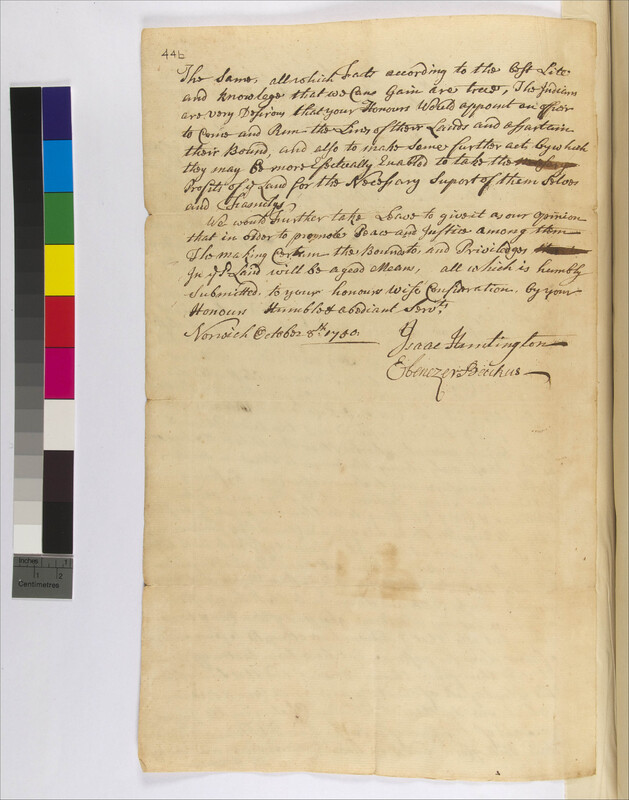 44b
The Same, all which facts according to the best Lite
and knowlege that we Can Gain are true, The Indians
are very Desirous that your Honours Would appoint an officer
to Come and Run the Lines of their Lands and assartain
their Bound, and also to make Some further act by which
they may be more Efectually Enabled to take the
Profits of ye Land for the Necessary Suport of them Selves
and Familys
We would further take Leave to give it as our opinion
that in order to promote Peace and Justice among them
The making Certain the Bounds to, and Priviledges
In ye sd Land will be a good Means, all which is humbly
Submitted to your honours Wise Consideration, by your
Honours Humble & obediant Servts
Norwich October 8th
Isaac Huntington
Ebenezer Backus
Inches 1
Centimetres 1 2